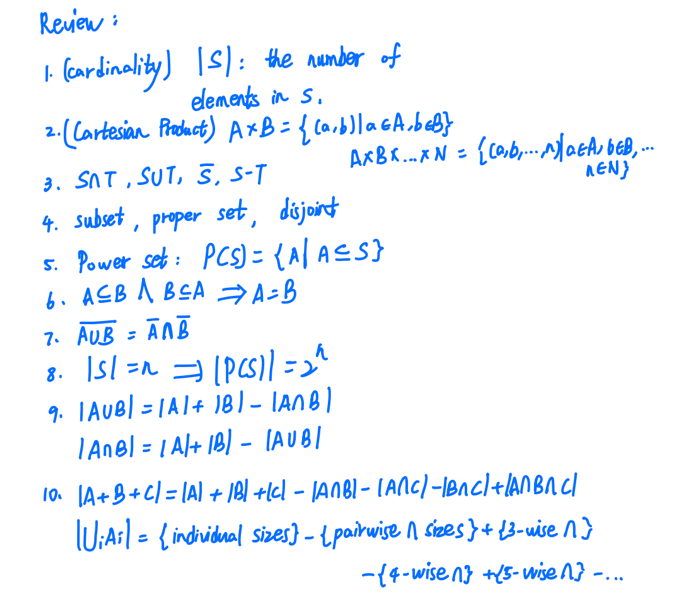 Review :
1. (cardinality) |S| : the number of
elements in S.
2. (Cartesian Product) A×B = {(a,b)|a∈A,b∈B}
A×B×...×N = {(a,b,...,n)|a∈A,b∈B,...
n∈N}
3. S∩T, S∪T, S̅, S-T
4. subset, proper set, disjoint
5. Power set : P(S) = {A| A⊆S}
6. A⊆B ∧ B⊆A ⇒ A=B
7. \overline{A∪B} = A̅∩B̅
8. |S|=n ⇒ |P(S)|=2ⁿ
9. |A∪B| = |A|+ |B| - |A∩B|
|A∩B| = |A|+|B| - |A∪B|
10. |A+B+C| = |A| + |B| +|C| - |A∩B| - |A∩C| -|B∩C|+|A∩B∩C|
|∪ᵢAᵢ| = {individual sizes} - {pairwise ∩ sizes} + {3-wise ∩}
-{4-wise ∩} +{5-wise ∩} - ...